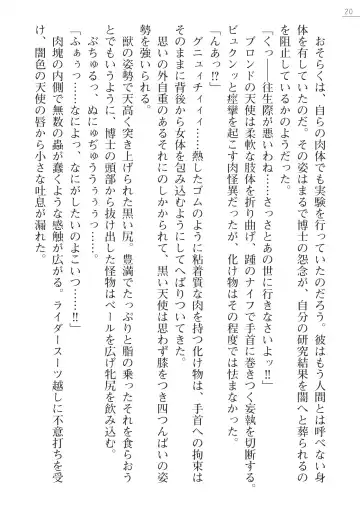 20
おそらくは、自らの肉体でも実験を行っていたのだろう。彼はもう人間とは呼べない身
体を有していたのだ。その姿はまるで博士の怨念が、自分の研究結果を闇へと葬られるの
を阻止しているかのようだった。
「くっ――往生際が悪いわね……さっさとあの世に行きなさいよッ!!」
ブロンドの天使は柔軟な肢体を折り曲げ、踵のナイフで手首に巻きつく妄執を切断する。
ビュクンッと痙攣を起こす肉怪異だったが、化け物はその程度では怯まなかった。
「んあっ!?」
グニュィチィィィ……熱したゴムのような粘着質な肉を持つ化け物は、手首への拘束は
そのままに背後から女体を包み込むようにしてへばりついてきた。
思いの外自重のあるそれにのしかかられ、黒い天使は思わず膝をつき四つんばいの姿
勢を強いられる。
獣の姿勢で天高く突き上げられた黒い尻。豊満でたっぷりと脂の乗ったそれを食らおう
とでもいうように、博士の頭部から抜け出した怪物はベールを広げ牝尻を包み込む。
ぶちゅるっ、ぬにゅぢゅうぅぅぅっ……。
「ふぁぅっ……なによっ、なにがしたいのよこいつ……」
肉塊の内側で無数の蟲が蠢くような感触が広がる。ライダースーツ越しに不意打ちを受
け、闇色の天使の唇から小さな吐息が漏れた。